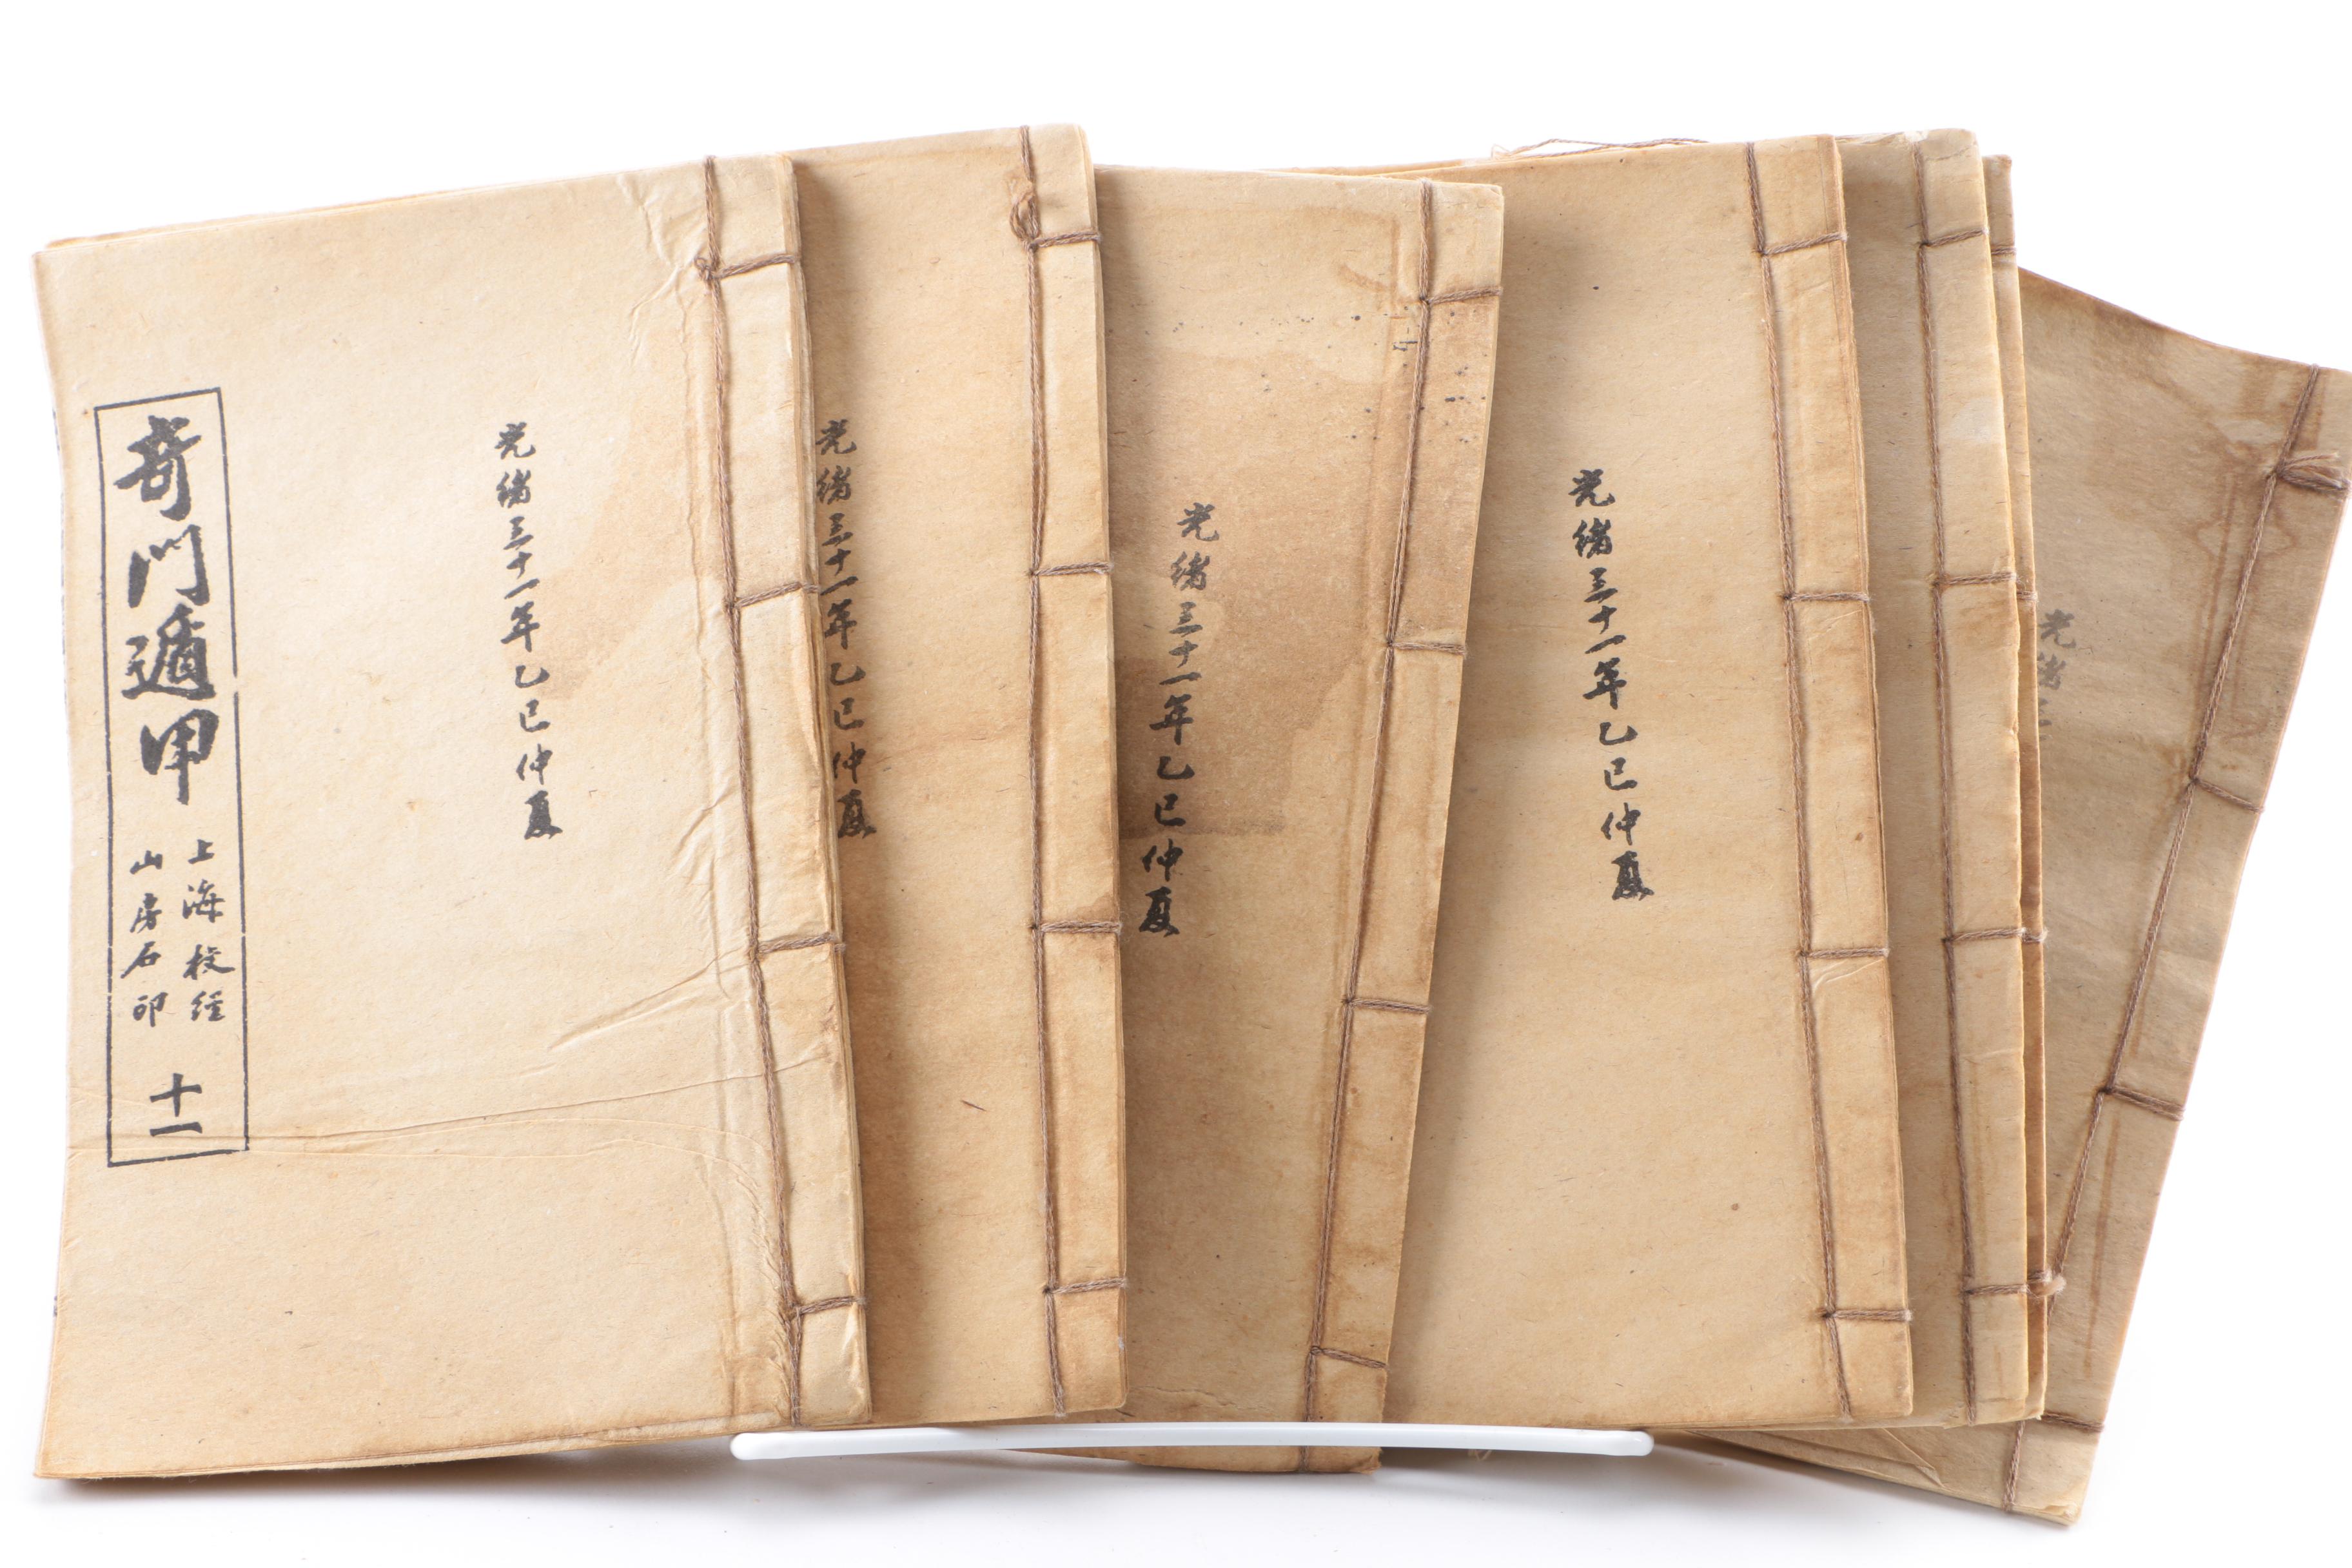 奇門遁甲
上海校經
山房石印
十一
光緒三十一年乙巳仲夏
光緒三十一年乙巳仲夏
光緒三十一年乙巳仲夏
光緒三十一年乙巳仲夏
光緒三